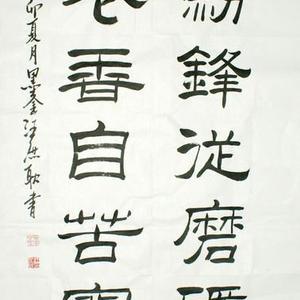 劍鋒從磨礪
花香自苦寒
卯夏月
書